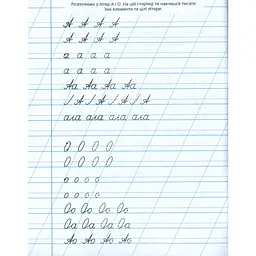 Розпочнемо з літер А і О. На цій сторінці ти навчишся писати
їхні елементи та цілі літери.
А А А А
А А А А
а а а а
а а а а
Аа Аа Аа Аа
/ А / А / А / А
ага ага ага ага
О О О О
О О О О
о о о о
о о о о
Оо Оо Оо Оо
Оа Оа Оа Оа
Ао Ао Ао Ао